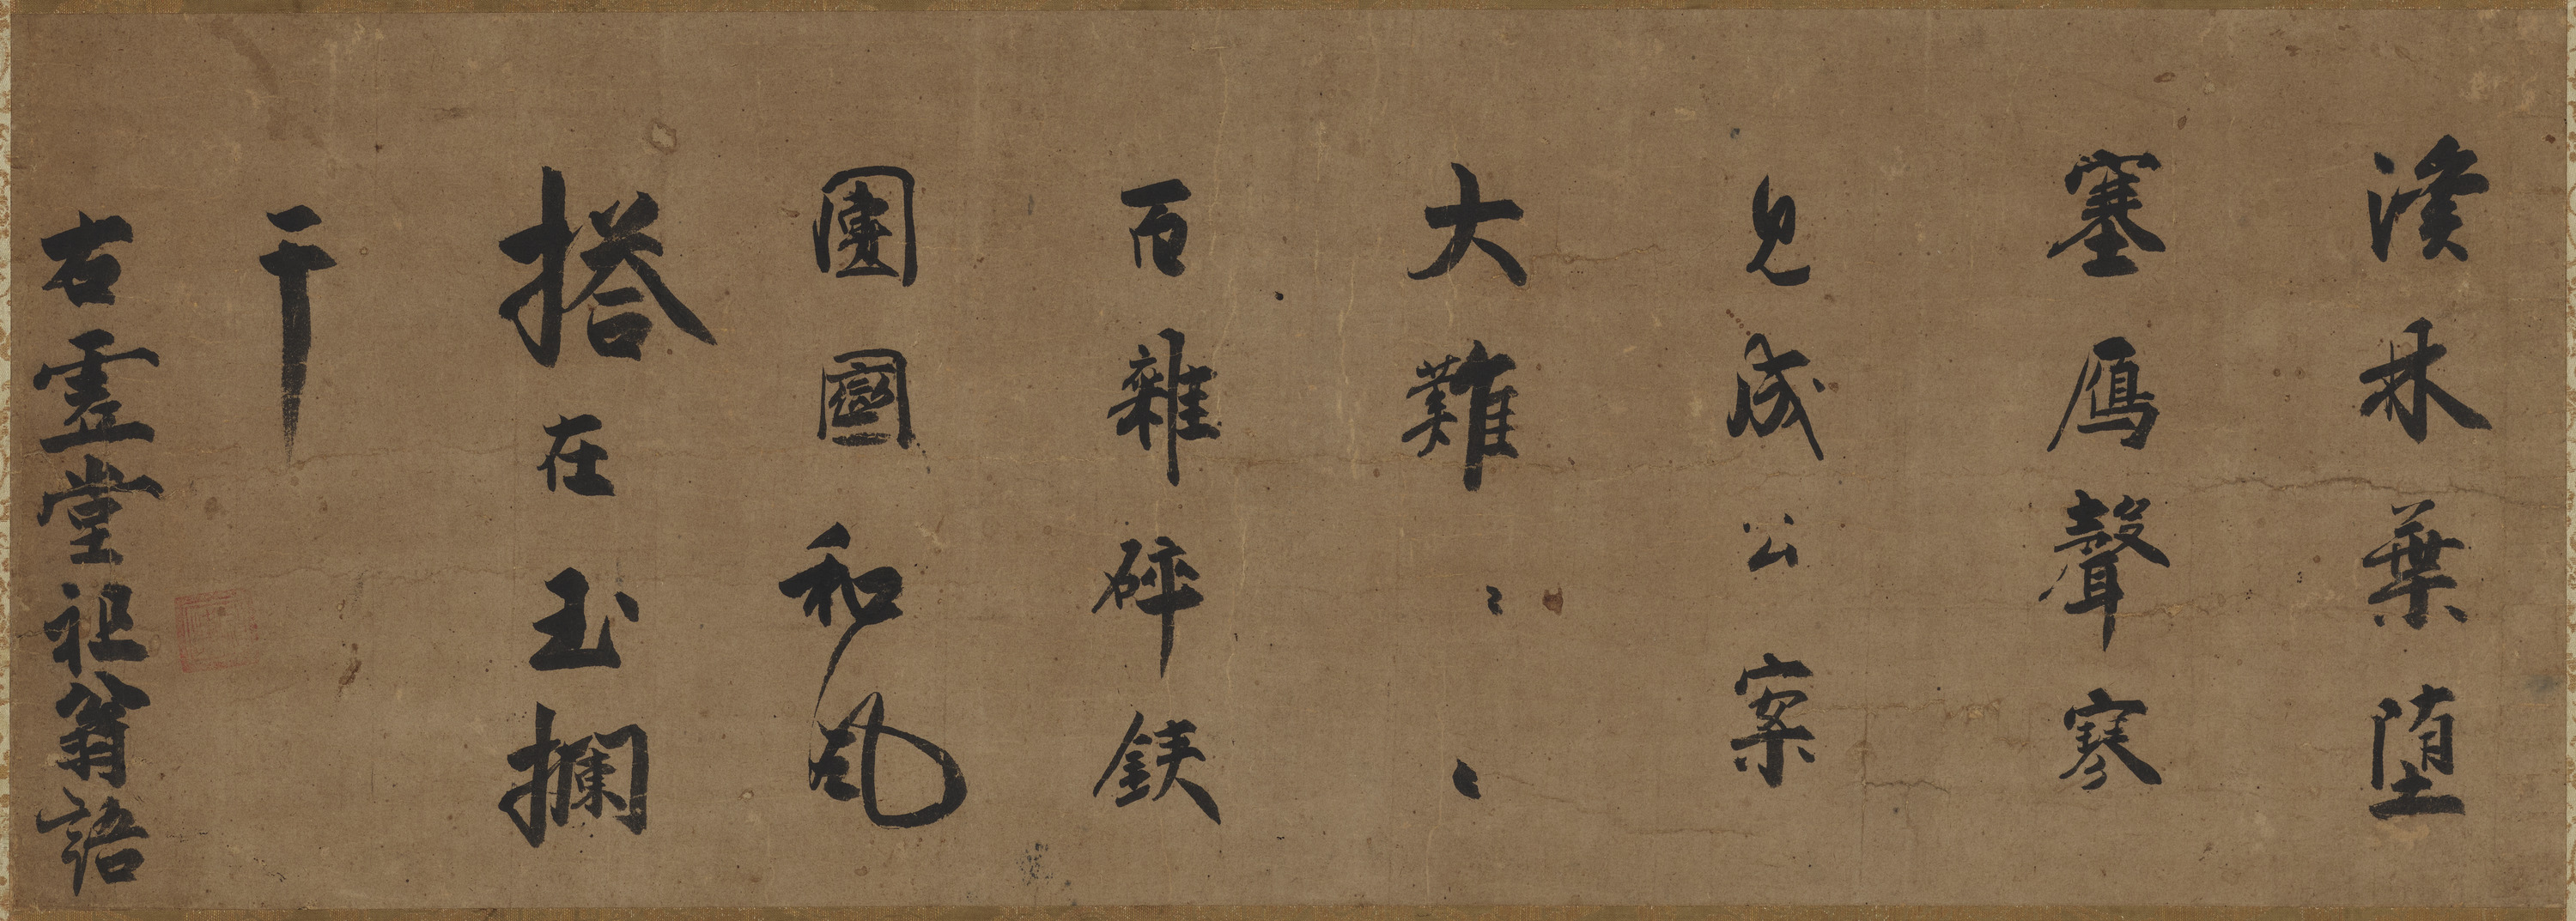 溪林葉堕
塞鴈聲寒
見成公案
大難〻〻
百雜碎鉄
團圞和風
搭在玉攔
干
右虚堂祖翁語